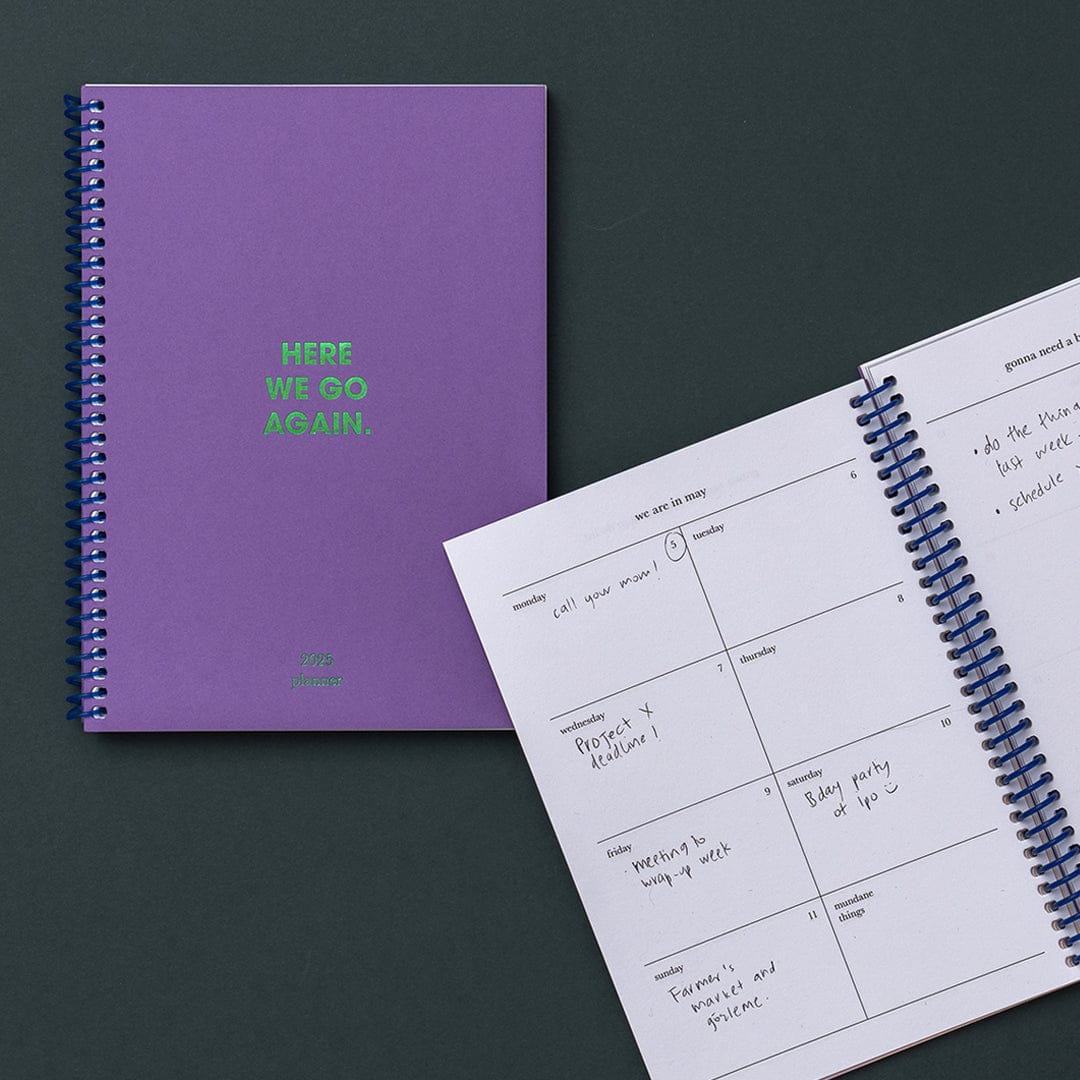 HERE
WE GO
AGAIN.
2025
planner
we are in may
monday
5
call your mom!
tuesday
6
wednesday
7
Project X
deadline!
thursday
8
friday
9
· meeting to
wrap-up week
saturday
10
Bday party
of Ipo
sunday
11
Farmer's
market and
gözleme.
mundane
things
gonna need a
• do the
last week
• schedule